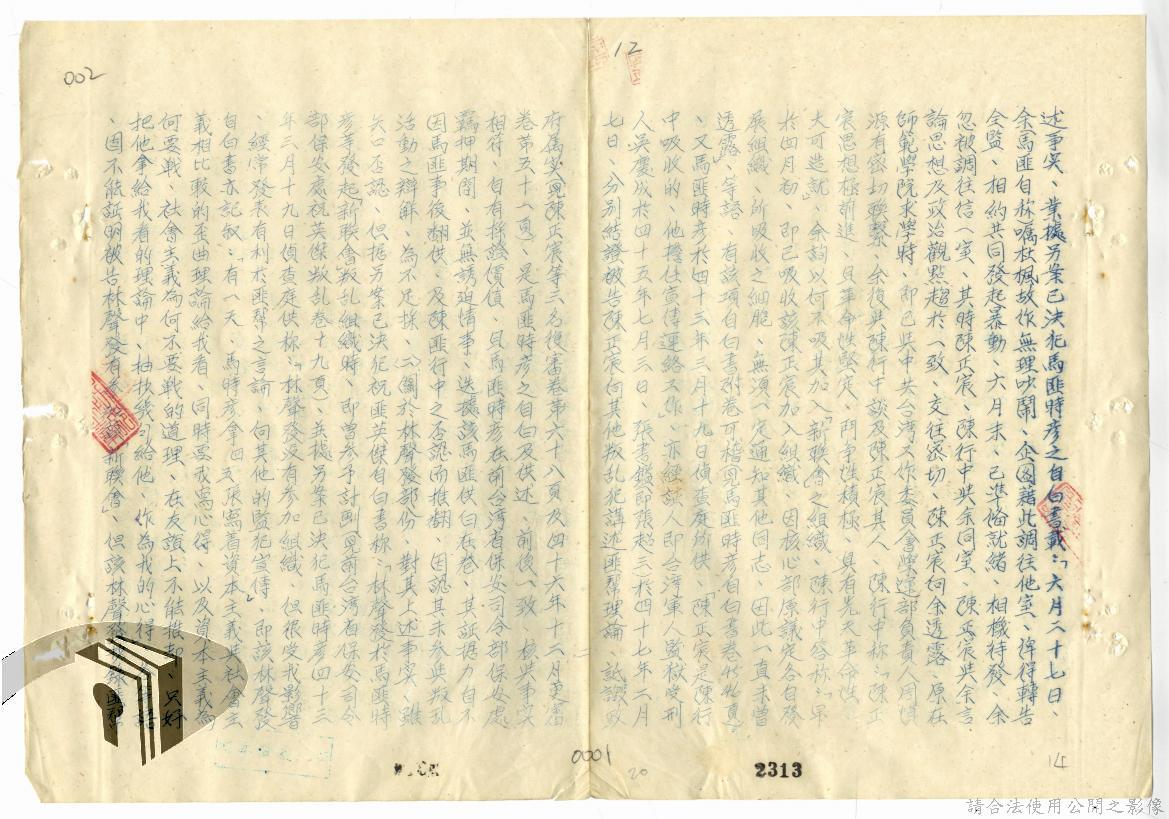 002
12
述事实、業據另案已決犯馬匪時彥之自白書載:「六月二十七日、
余馬匪自称嘱杜楓故作無理吵鬧、企圖藉此調往他室、俾得轉告
全監、相約共同發起暴動、六月末、已準備就緒、相機待發、余
忽被調往信一室、其時陳正宸、陳行中與余同室、陳正宸與余言
論思想及政治觀點趨於一致、交往密切、陳正宸向余透露、原在
師範學院求學時、即已與中共台湾工作委員會學運部負責人周慎
源有密切联繫、余復與陳行中談及陳正宸其人、陳行中称:「陳正
宸思想極前進、且革命性堅定、鬥争性積極、具有先天革命性、
大可造就」、余詢以何不吸其加入「新联會」之組織、陳行中答称:「早
於四月初、即已吸收該陳正宸加入組織、因核心部原議定各自發
展組織、所吸收之細胞、無須一定通知其他同志、因此一直未曾
透露」等語、有該項自白書附卷可稽見馬匪時彥自白書卷
、又馬匪時彥於四十三年三月十九日偵查庭所供「陳正宸是陳行
中吸收的、他擔任宣傳連絡工作」、亦經談人即台湾軍人監獄
人吳慶成於四十五年七月三日、張書鑑即張超三於四十七年二月
七日、分別結證被告陳正宸向其他叛乱犯講述匪幫理論
府屬
卷第五十一頁)、是馬匪時彥之自白及供述、前後一致、核與事实
相符、自有採證價值、且馬匪時彥在前台湾省保安司令部保安處
羈押期間、並無誘迫情事、迭據該馬匪供白在卷、其証據力自不
因馬匪事後翻供、及陳匪行中之否認而推翻、因認其未参與叛乱
活動之辯解、為不足採、㈡關於林聲發部份、對其上述事实、雖
矢口否認、但據另案已決犯祝匪英傑自白書称:「林聲發於馬匪時
彥等發起「新联會叛乱組織時、即曾参予計劃見前台湾省保安司令
部保安處祝英傑叛乱卷十九頁)、並據另案已決犯馬匪時彥四十三
年三月十九日偵查庭供称:「林聲發没有参加組織、但很受我影響
、經常發表有利於匪幫之言論、向其他的監犯宣傳」、即該林聲發
自白書亦記叙:「有一天、馬時彥拿四五張寫着資本主義與社會主
義相比較的歪曲理論給我看、同時要我寫心得、以及資本主義為
何要戰、社會主義為何不要戰的道理、在友誼上不能推却、只好
把他拿給我看的理論中、抽抄幾 給他、作為我的心得
、因不能証明被告林聲發有参加 新联會」、但該林聲發 匪幫
0001
20
2313
14
請合法使用公開之影像